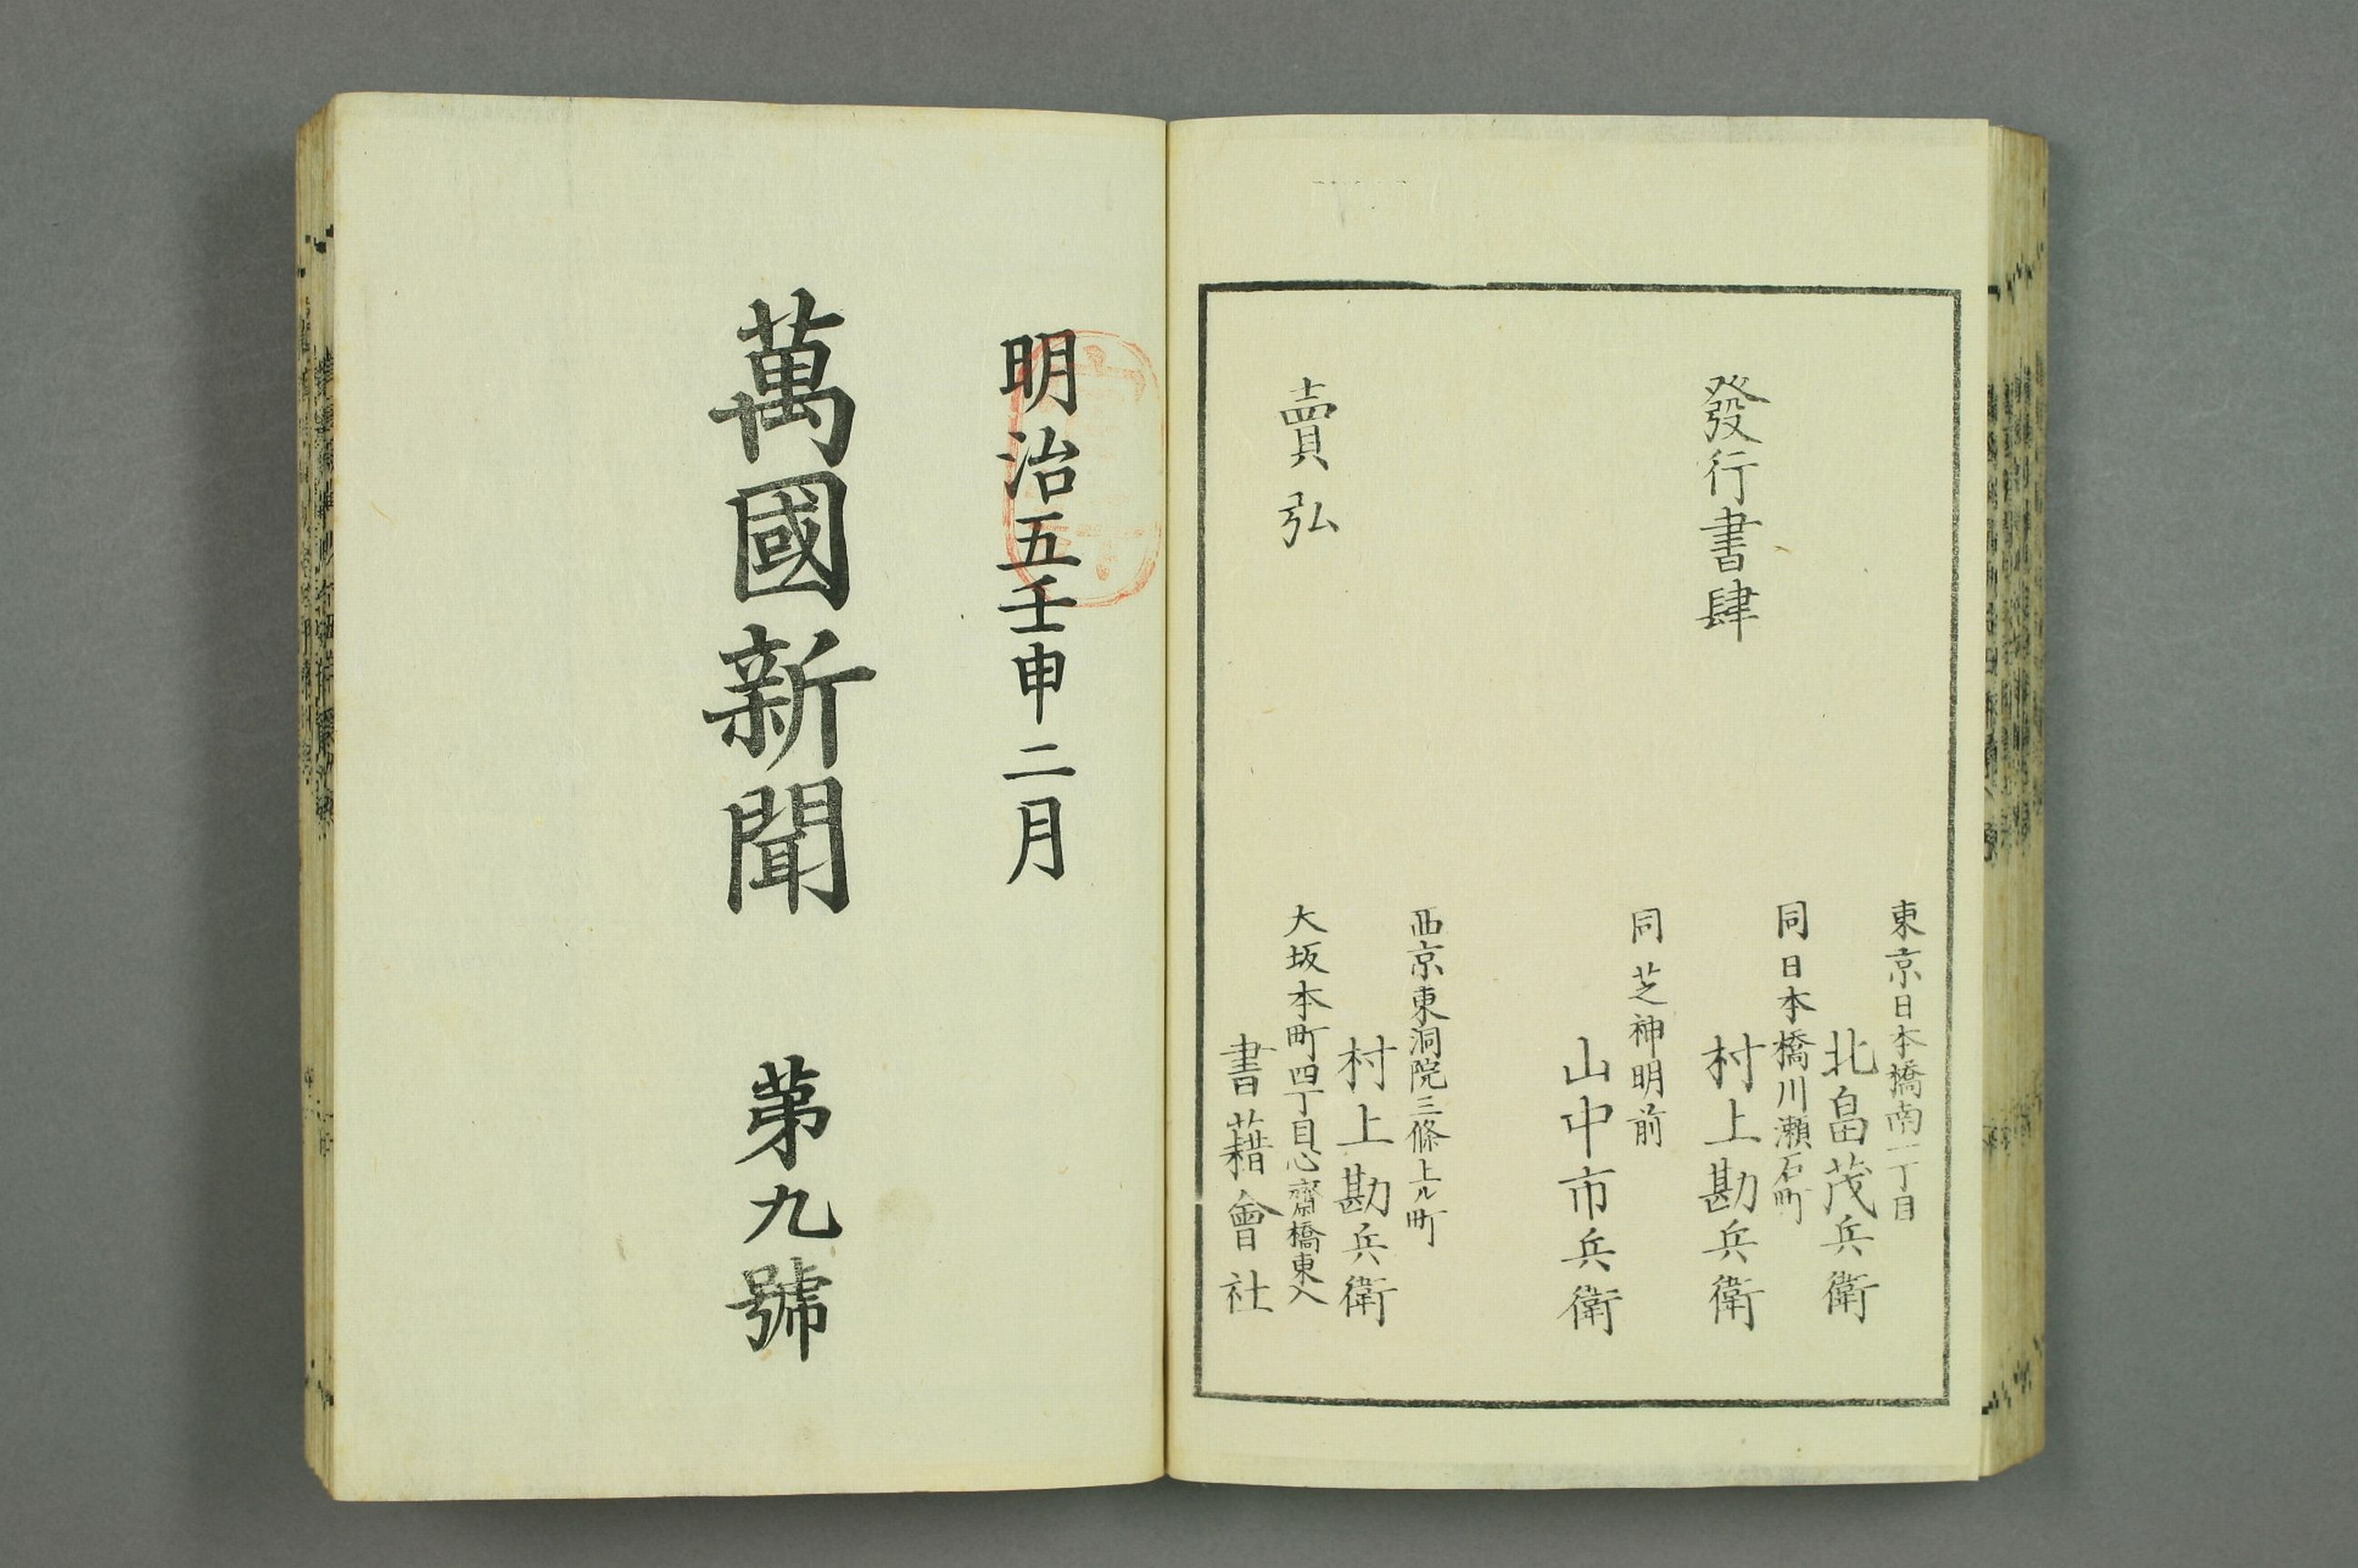 發行書肆
東京日本橋南一丁目
北畠茂兵衛
同日本橋川瀬石町
村上勘兵衛
同芝神明前
山中市兵衛
賣弘
西京東洞院三條上ル町
村上勘兵衛
大坂本町四丁目心齋橋東入
書藉會社
明治五壬申二月
萬國新聞 第九號